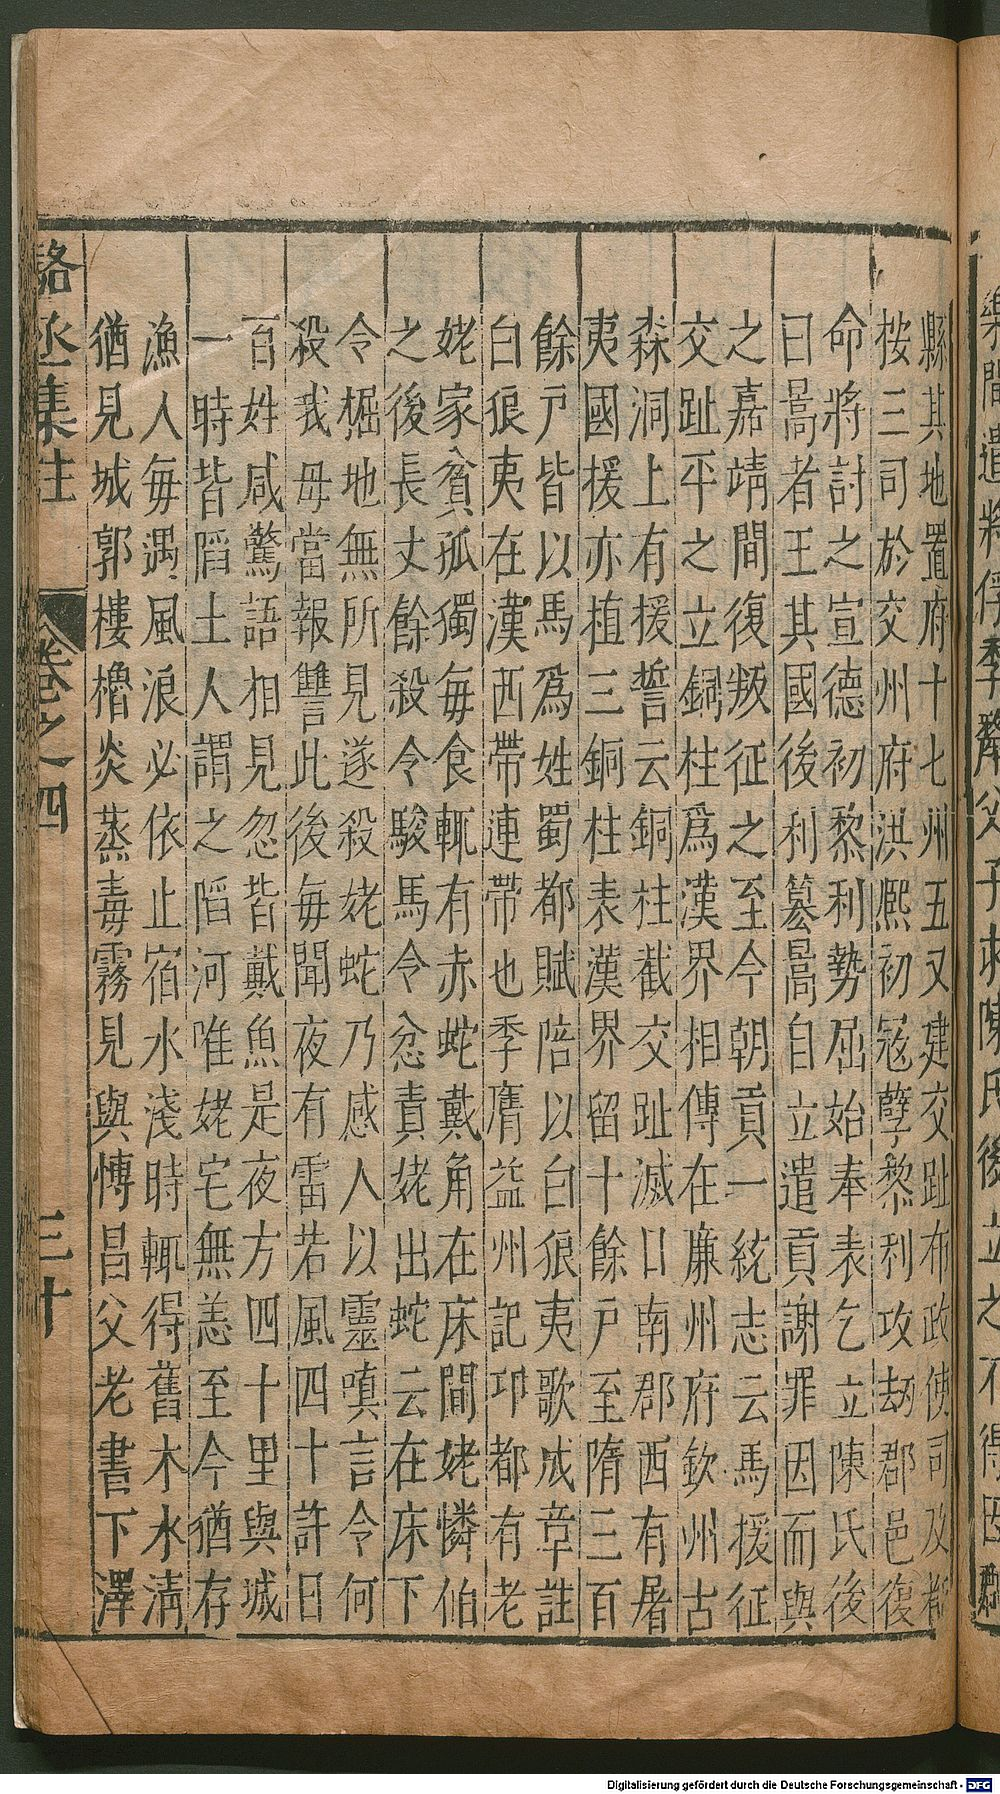 縣其地置府十七州五又建交趾布政使司及都
按三司於交州府洪熈初冦孽黎利攻劫郡邑復
命將討之宣德初黎利勢屈始奉表乞立陳氏後
曰暠者王其國後利簒暠自立遣貢謝罪因而與
之嘉靖間復叛征之至今朝貢一統志云馬援征
交趾平之立銅柱爲漢界相傳在廉州府欽州古
森洞上有援誓云銅柱截交趾滅口南郡西有屠
夷國援亦植三銅柱表漢界留十餘戶至隋三百
餘戶皆以馬爲姓蜀都賦陪以白狼夷歌成章註
白狼夷在漢西帶連帶也季膺益州記卭都有老
姥家貧孤獨毎食輒有赤蛇戴角在床間姥憐伯
之後長丈餘殺令駿馬令忿責姥出蛇云在床下
令堀地無所見遂殺姥蛇乃感人以靈嗔言令何
殺我毋當報讐此後毎聞夜有雷若風四十許日
百姓咸驚語相見忽皆戴魚是夜方四十里與城
一時皆䧟土人謂之䧟河唯姥宅無恙至今猶存
漁人毎遇風浪必依止宿水淺時輒得舊木水淸
猶見城郭樓櫓炎蒸毒霧見與慱昌父老書下澤
駱丞集註
卷之四
三十
樂間遣將俘季犛父子求陳氏後立之不得因
Digitalisierung gefördert durch die Deutsche Forschungsgemeinschaft - DFG